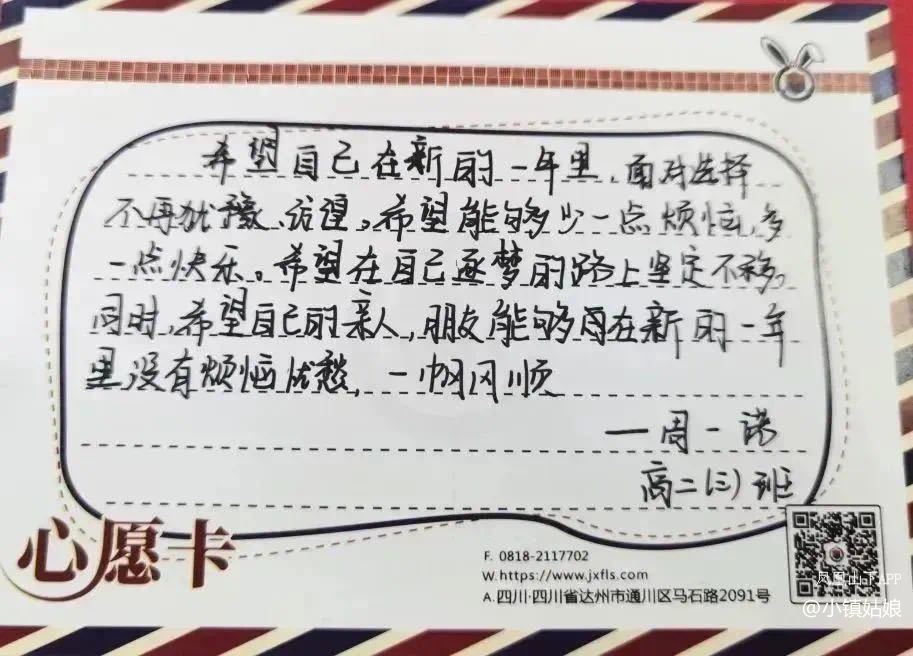 希望自己在新的一年里,面对选择
不再犹豫、彷徨。希望能够少一点烦恼,多
一点快乐。希望在自己逐梦的路上坚定不移。
同时,希望自己的亲人,朋友能够在新的一年
里没有烦恼忧愁,一帆风顺
—周一诺
高二(三)班
心愿卡
F. 0818-2117702
W.https://www.jxfls.com
A.四川·四川省达州市通川区马石路2091号
凤凰山下APP
@小镇姑娘